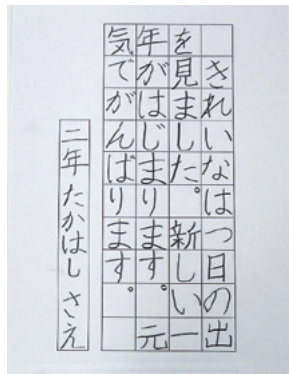 きれいなはつ日の出
を見ました。新しい一
年がはじまります。元
気でがんばります。
二年たかはしさえ